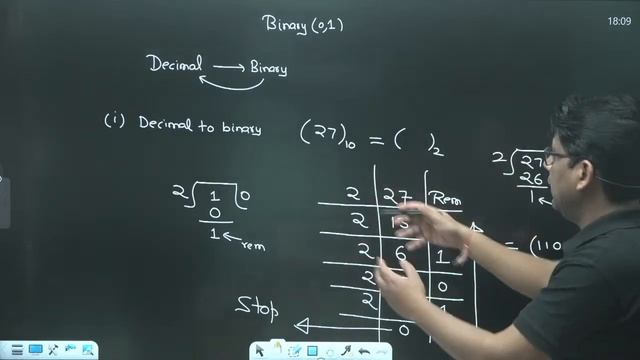 Binary (0,1)
18:09
Decimal → Binary
(i) Decimal to binary (27)₁₀ = ( )₂
2 27
26
1
2 1 0
0
1 ← rem
2 27 Rem
2
2 6 1
2 0
2
0
Stop
= (110